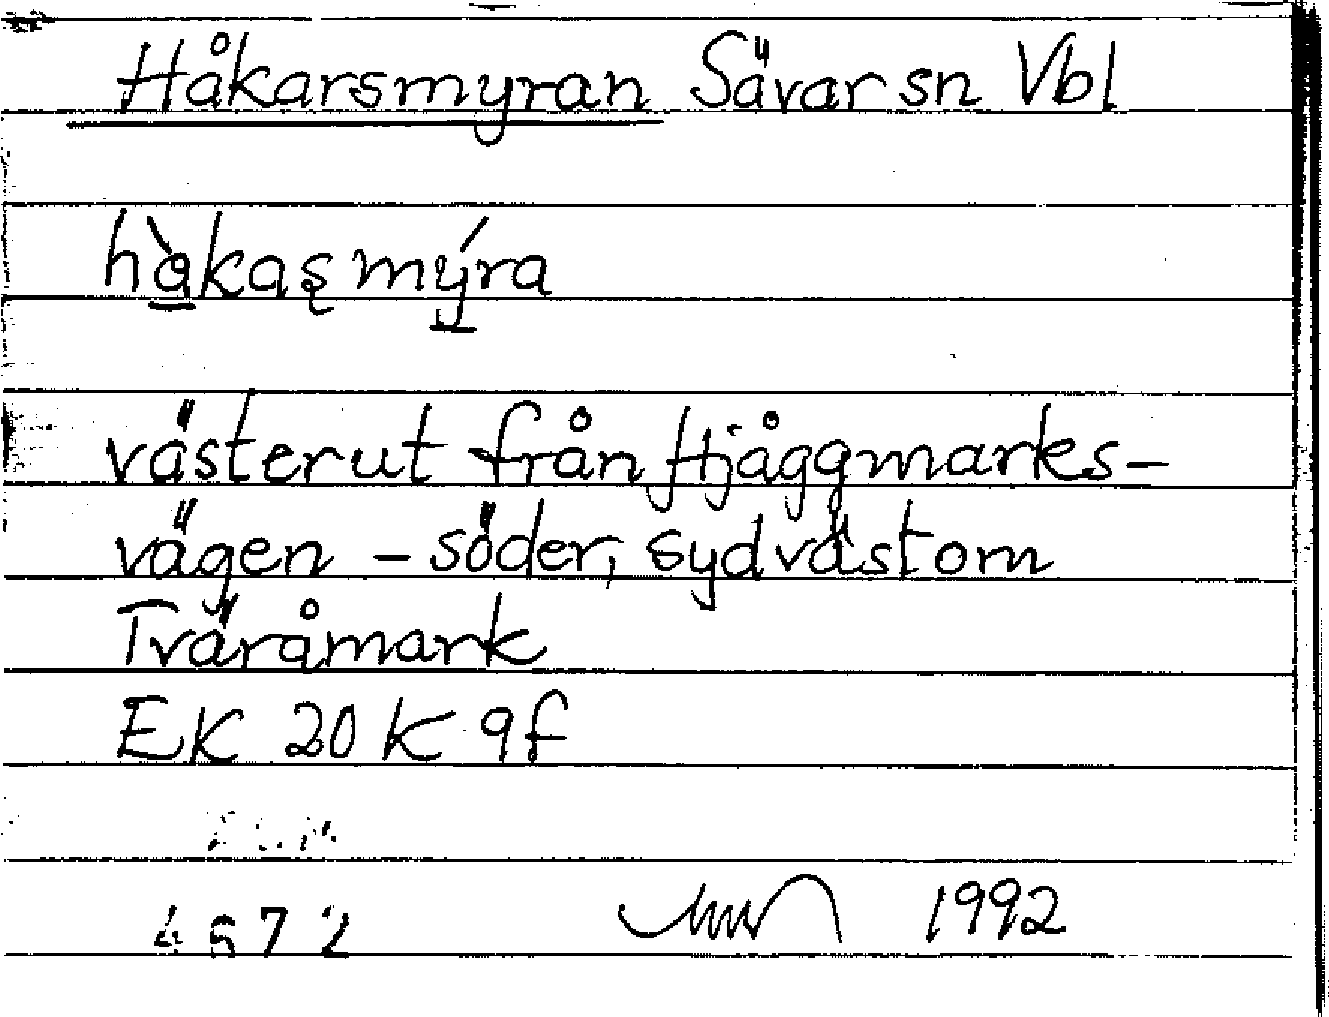 Håkarsmyran Sävar sn Vbl
hàkaşmýra
västerut från Hjåggmarks-
vägen – söder, sydväst om
Tväråmark
EK 20 K 9f
4672 1992